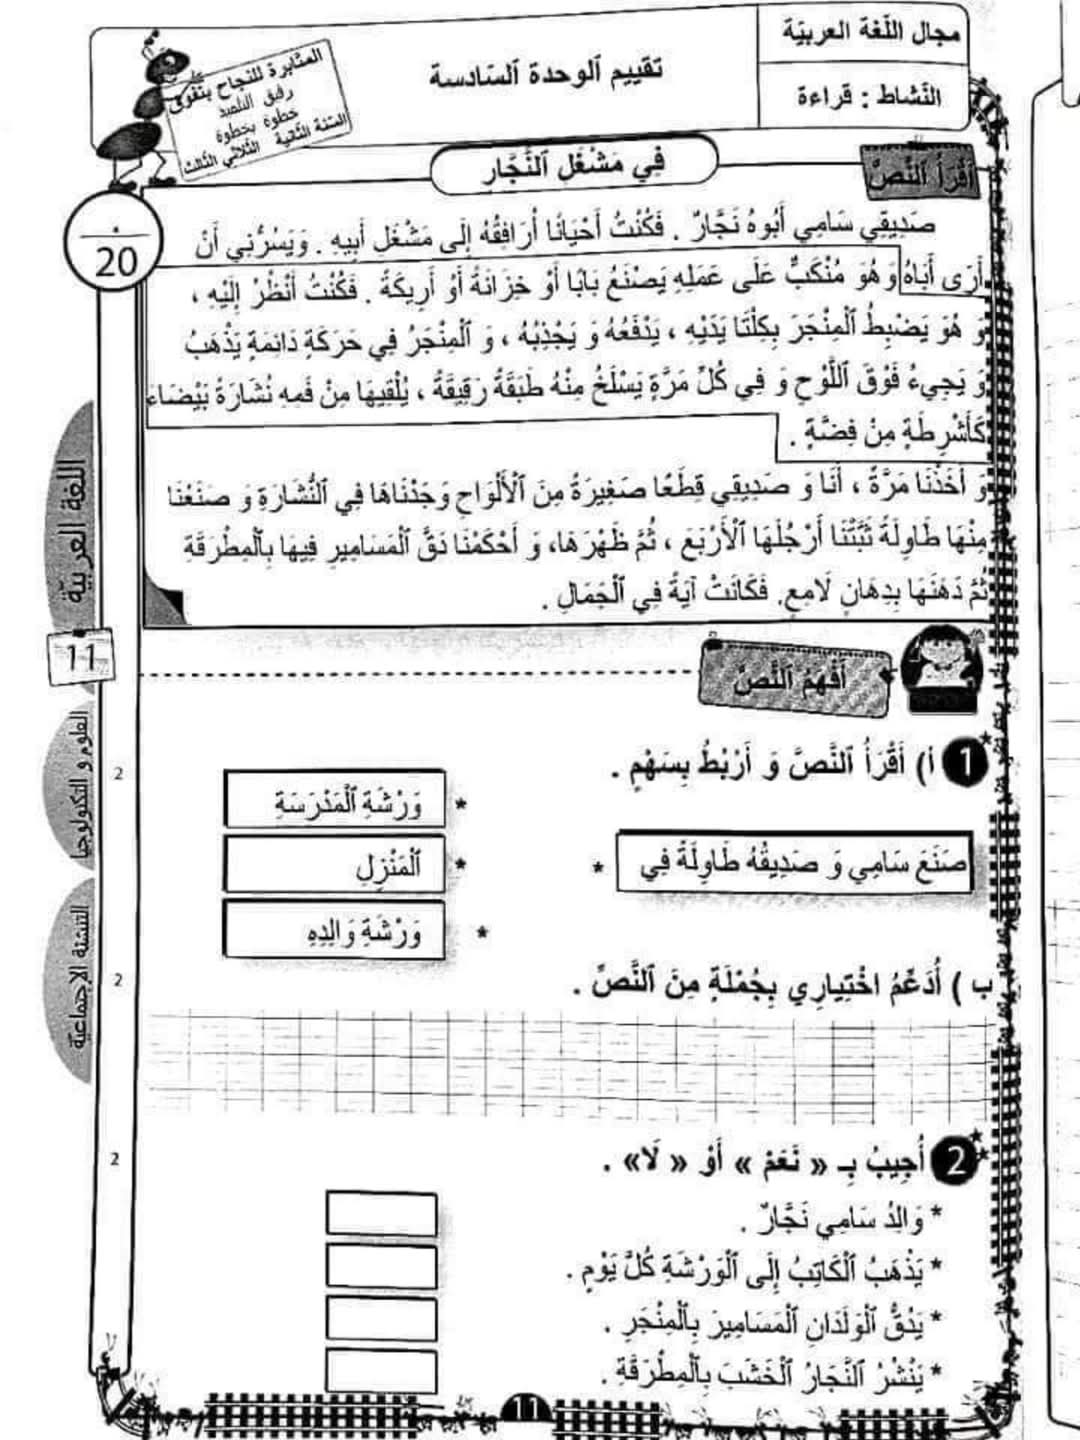 مجال اللّغة العربيّة
النّشاط : قراءة
تقييم ٱلوحدة ٱلسّادسة
المثابرة للنجاح بتفوّق
رفيق التلميذ
خطوة بخطوة
السّنة الثّانية الثّلاثي الثّالث
أَقْرَأُ ٱلنَّصَّ
فِي مَشْغَلِ ٱلنَّجَّارِ
20
صَدِيقِي سَامِي أَبُوهُ نَجَّارٌ . فَكُنْتُ أَحْيَانًا أُرَافِقُهُ إِلَى مَشْغَلِ أَبِيهِ . وَيَسُرُّنِي أَنْ
أَرَى أَبَاهُ وَ هُوَ مُنْكَبٌّ عَلَى عَمَلِهِ يَصْنَعُ بَابًا أَوْ خِزَانَةً أَوْ أَرِيكَةً . فَكُنْتُ أَنْظُرُ إِلَيْهِ ،
وَ هُوَ يَضْبِطُ ٱلْمِنْجَرَ بِكِلْتَا يَدَيْهِ ، يَدْفَعُهُ وَ يَجْذِبُهُ ، وَ ٱلْمِنْجَرُ فِي حَرَكَةٍ دَائِمَةٍ يَذْهَبُ
وَ يَجِيءُ فَوْقَ ٱللَّوْحِ وَ فِي كُلِّ مَرَّةٍ يَسْلَخُ مِنْهُ طَبَقَةً رَقِيقَةً ، يُلْقِيهَا مِنْ فَمِهِ نُشَارَةً بَيْضَاءَ
كَأَشْرِطَةٍ مِنْ فِضَّةٍ .
وَ أَخَذْنَا مَرَّةً ، أَنَا وَ صَدِيقِي قِطَعًا صَغِيرَةً مِنَ ٱلْأَلْوَاحِ وَجَدْنَاهَا فِي ٱلنُّشَارَةِ وَ صَنَعْنَا
مِنْهَا طَاوِلَةً ثَبَّتْنَا أَرْجُلَهَا ٱلْأَرْبَعَ ، ثُمَّ ظَهْرَهَا، وَ أَحْكَمْنَا دَقَّ ٱلْمَسَامِيرِ فِيهَا بِٱلْمِطْرَقَةِ
ثُمَّ دَهَنَهَا بِدِهَانٍ لَامِعٍ. فَكَانَتْ آيَةً فِي ٱلْجَمَالِ .
اللّغة العربيّة
11
العلوم و التكنولوجيا
التنشئة الإجتماعيّة
أَفْهَمُ ٱلنَّصَّ
1 أ) أَقْرَأُ ٱلنَّصَّ وَ أَرْبِطُ بِسَهْمٍ .
2
صَنَعَ سَامِي وَ صَدِيقُهُ طَاوِلَةً فِي *
* وَرْشَةِ ٱلْمَدْرَسَةِ
* ٱلْمَنْزِلِ
* وَرْشَةِ وَالِدِهِ
ب ) أُدَعِّمُ اخْتِيارِي بِجُمْلَةٍ مِنَ ٱلنَّصِّ .
2
2 أُجِيبُ بِـ « نَعَمْ » أَوْ « لَا» .
2
* وَالِدُ سَامِي نَجَّارٌ .
* يَذْهَبُ ٱلْكَاتِبُ إِلَى ٱلْوَرْشَةِ كُلَّ يَوْمٍ .
* يَدُقُّ ٱلْوَلَدَانِ ٱلْمَسَامِيرَ بِٱلْمِنْجَرِ .
* يَنْشُرُ ٱلنَّجَارُ ٱلْخَشَبَ بِٱلْمِطْرَقَةِ .
11